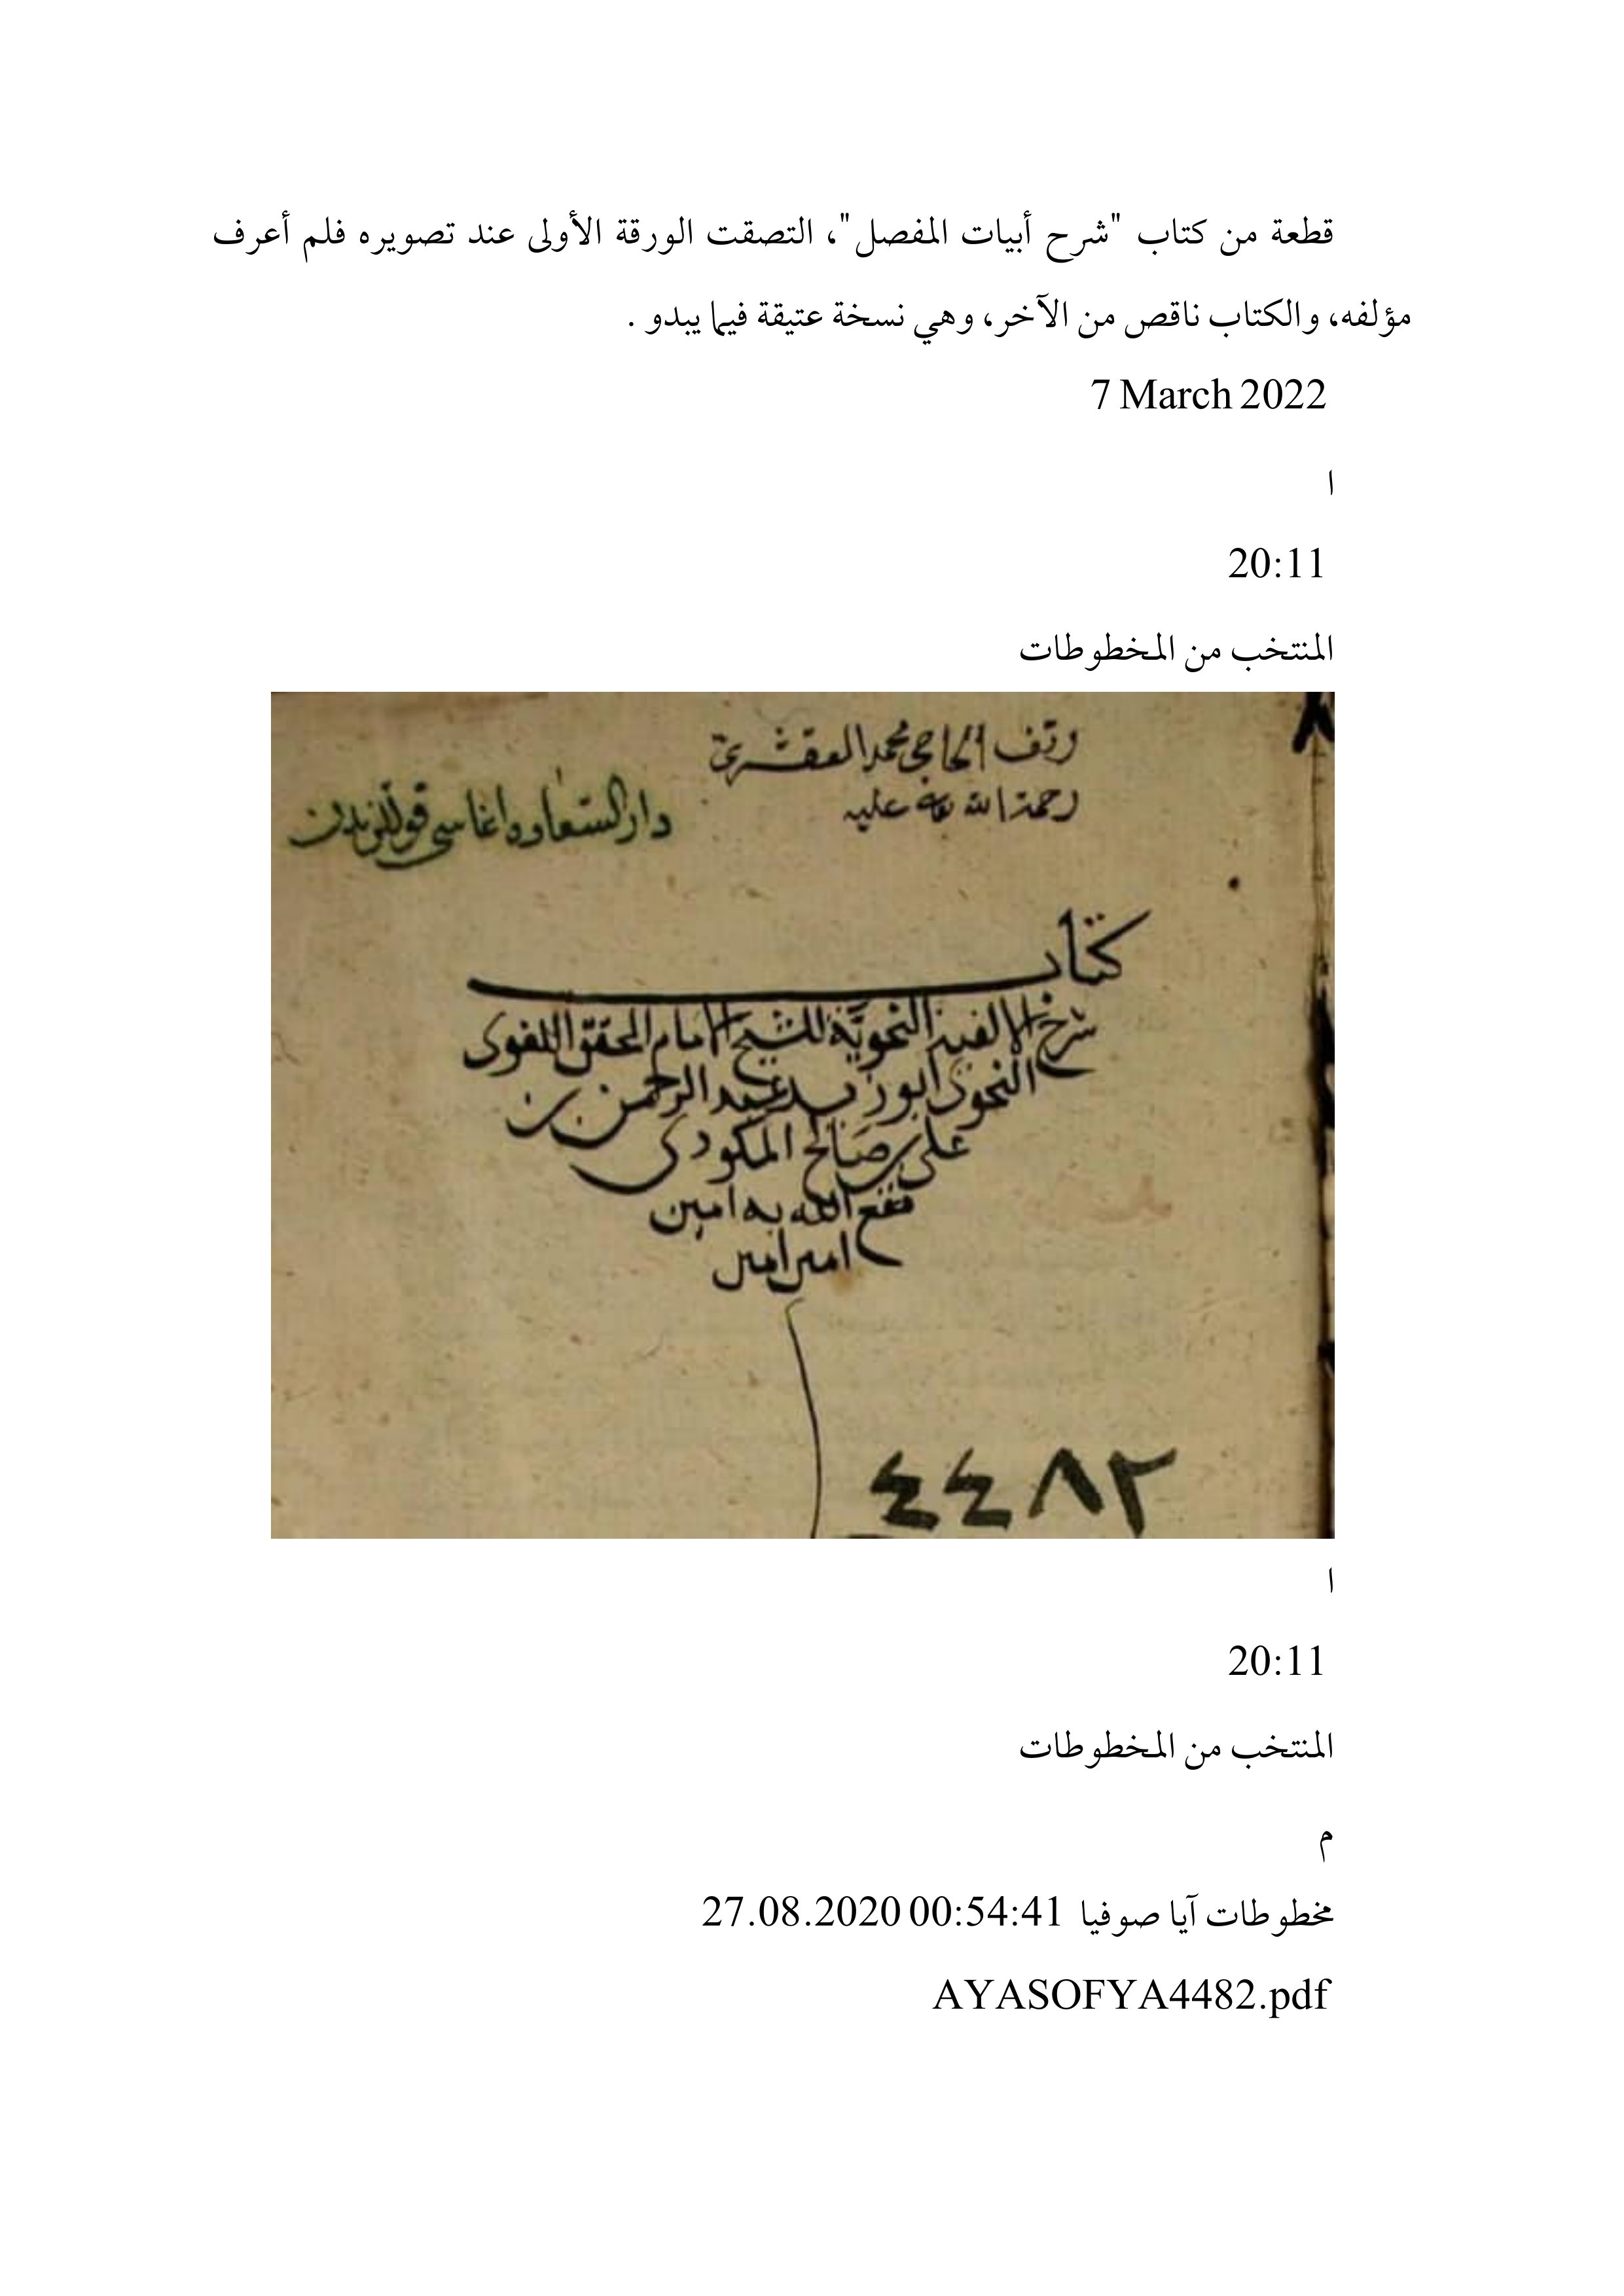 قطعة من كتاب "شرح أبيات المفصل"، التصقت الورقة الأولى عند تصويره فلم أعرف
مؤلفه، والكتاب ناقص من الآخر، وهي نسخة عتيقة فيما يبدو .
7 March 2022
ا
20:11
المنتخب من المخطوطات
وقف الحاجي محمد العقشري
رحمة الله عليه
دار السعاده اغاسى قوللرندن
كتاب
شرح الالفية النحويّة للشيخ الامام المحقق اللغوى
النحوى ابو زيد عبد الرحمن بن
على بن صالح المكودى
نفع الله به امين
امين امين
٤٤٨٢
ا
20:11
المنتخب من المخطوطات
م
مخطوطات آيا صوفيا 27.08.2020 00:54:41
AYASOFYA4482.pdf